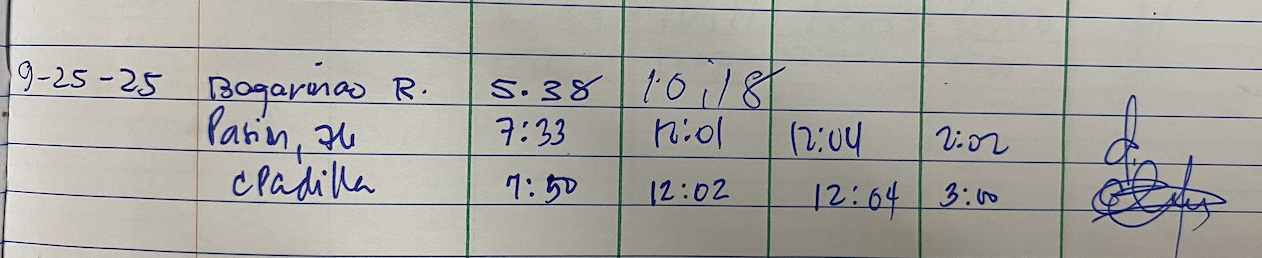 9-25-25 Bagarinao R. 5.38 10:18
Pasin, JL 7:33 12:01 12:04 2:02
cPadilla 7:50 12:02 12:04 3:00